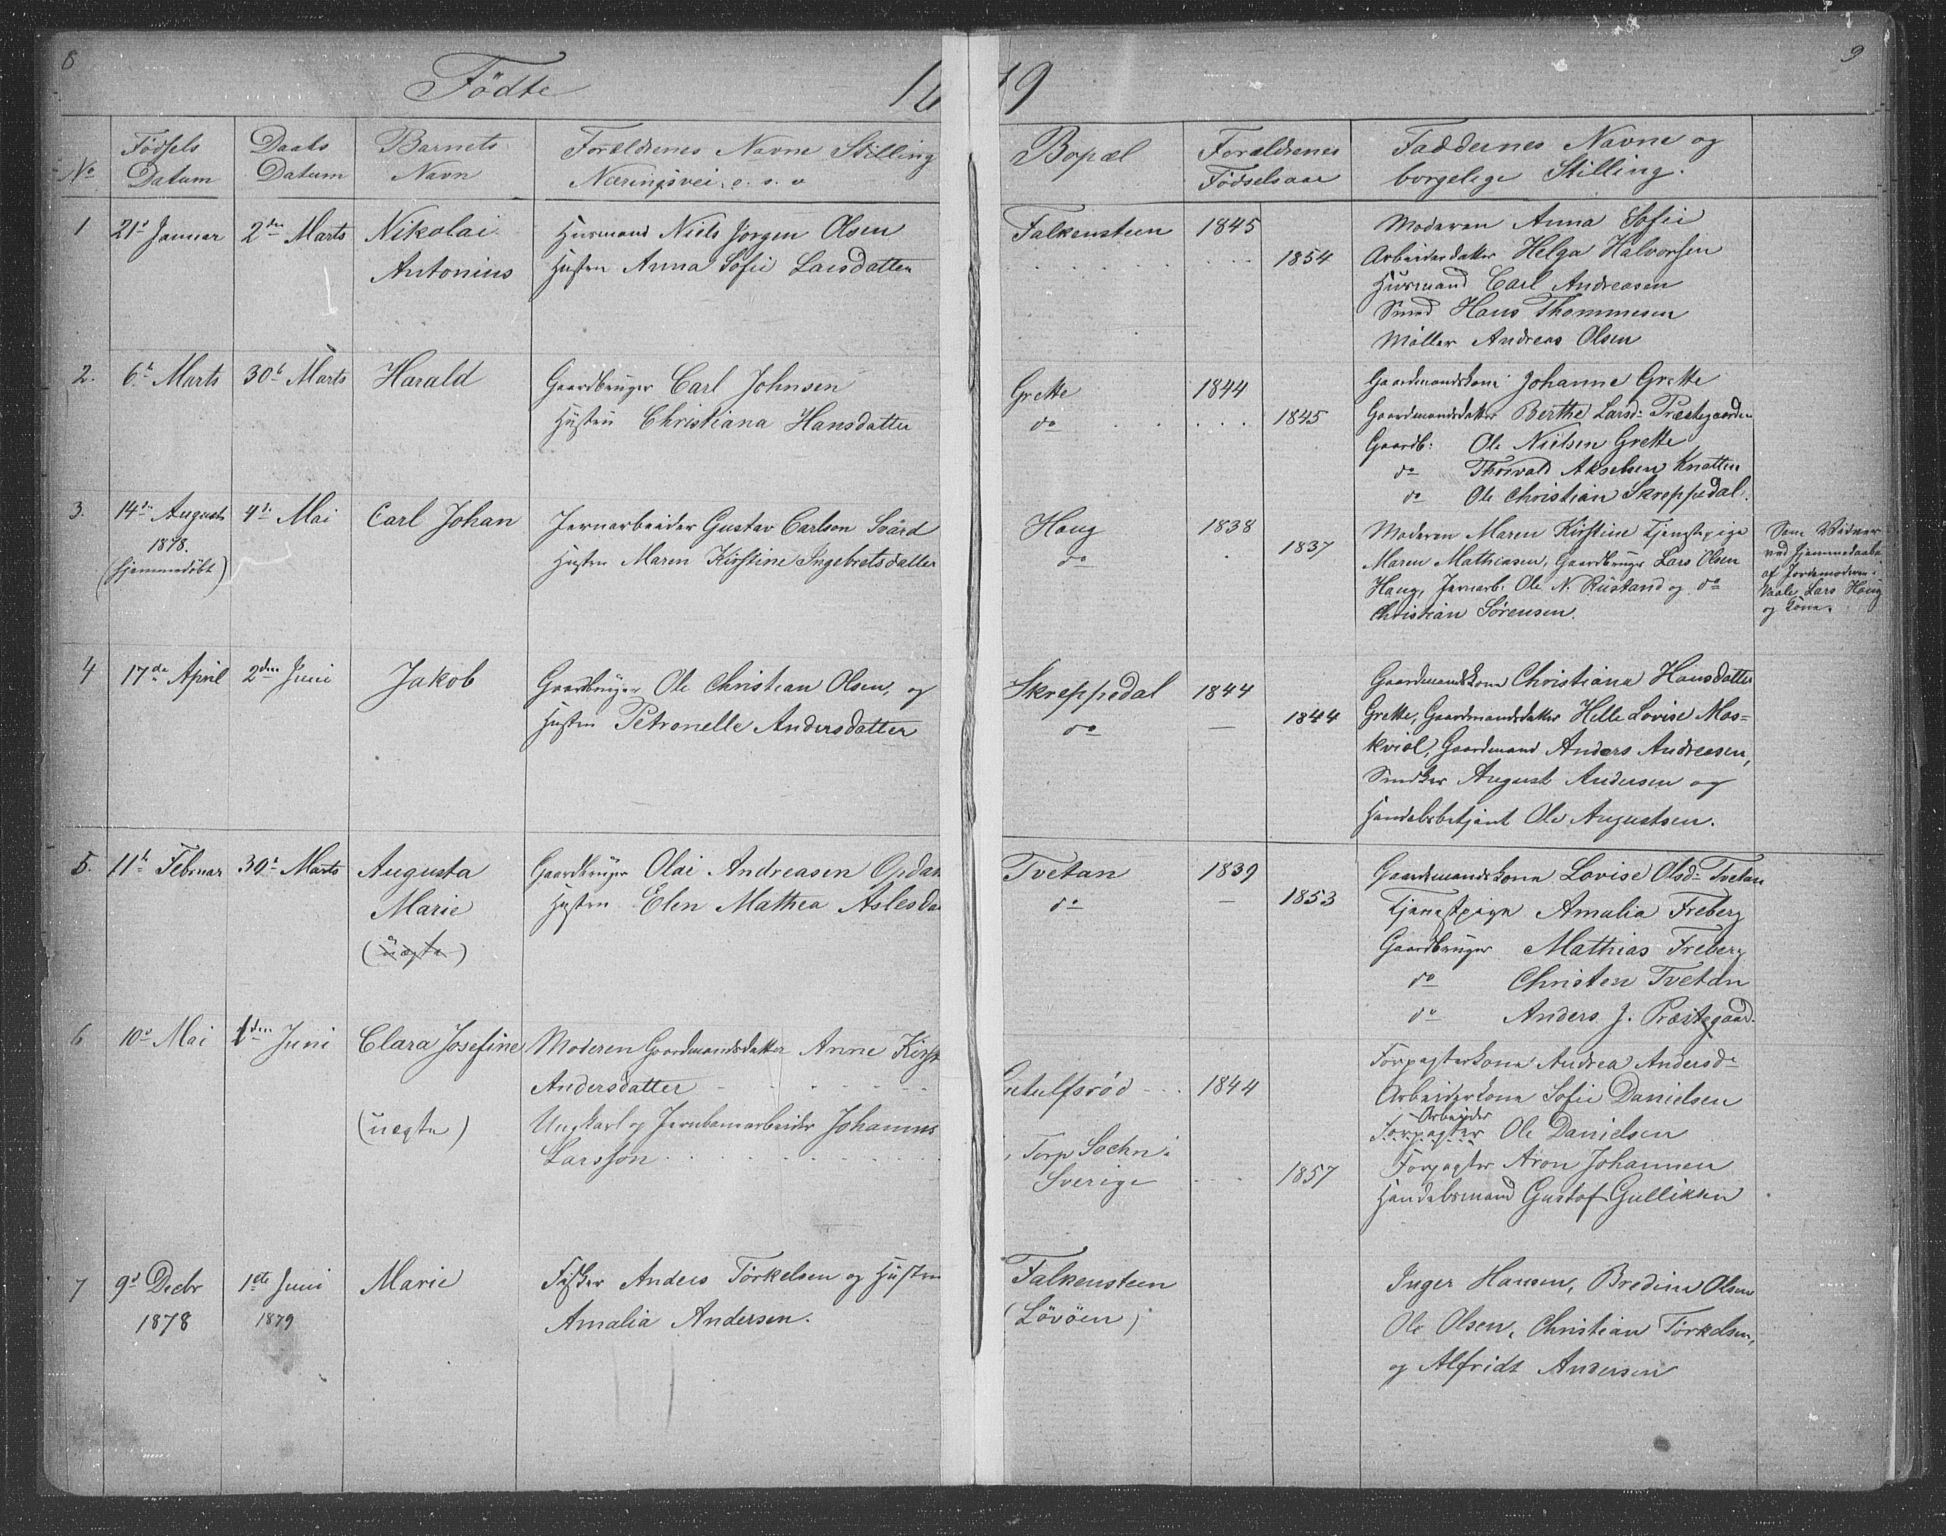 8
Födte
No
Födsels Datum
Daabs Datum
Barnets Navn
Forældrenes Navne Stilling
Næringsvei o. s. v
1
21d Januar
2den Marts
Nikolai
Antonius
Husmand Niels Jörgen Olsen
Hustru Anna Sofie Larsdatter
2.
6te Marts
30te Marts
Harald
Gaardbruger Carl Johnsen
Hustru Christiana Hansdatter
3.
14de August
1878.
(hjemmedöbt)
4de Mai
Carl Johan
Jernarbeider Gustav Carlson Svärd
Hustru Maren Kirstine Ingebretsdatter
4
17de April
2den Juni
Jakob
Gaardbruger Ole Christian Olsen, og
Hustru Petronelle Andersdatter
5.
11te Februar
30te Marts
Augusta
Marie
(uægte)
Gaardbruger Olai Andreasen Opdal
Hustru Elen Mathea Aslesda
6
10de Mai
Juni
Clara Josefine
(uægte)
Moderen Gaardmandsdatter Anne Kirst
Andersdatter
Ungkarl og Jernbanearbeider Johannes
Larsson
7
9d Decbr
1878
1ste Juni
1879
Marie
Fisker Anders Törkelsen og Hustru
Amalia Andersen.
9
9
Bopæl
Forældrenes
Födselsaar
Faddernes Navne og
borgelige Stilling.
Falkensteen
1845
1854
Moderen Anna Sofie
Arbeiderdatter Helga Halvorsen
Husmand Carl Andreasen
Smed Hans Thommesen
Möller Andreas Olsen
Grette
do
1844
1845
Gaardmandskone Johanne Grette
Gaardmandsdatter Berthe Larsd: Præstegaarden
Gaardb: Ole Nielsen Grette
do Thorvald Akselsen Knatten
do Ole Christian Skreppedal.
Haug
do
1838
1837
Moderen Maren Kirstine Tjenestpige
Maren Mathiasen, Gaardbruger Lars Olsen
Haug, Jernarb: Ole N. Rustand og do
Christian Sörensen.
Som Vidner
ved hjemmedaaben
af Jordemoderen i
Vaale, Lars Haug
og Kone.
Skreppedal
do
1844
1844
Gaardmandskone Christiana Hansdatter
Grette, Gaardmandsdatter Helle Lovise Mos=
kviel, Gaardmand Anders Andreasen,
Snedker August Andersen og
Handelsbetjent Ole Augustsen.
Tvetan
do
1839
1853
Gaardmandskone Lovise Olsd: Tvetan
Tjenestpige Amalia Freberg
Gaardbruger Mathias Freberg
do Christen Tvetan
do Anders J. Præstegaard.
Gutulfsröd
1844
Torp Sochn i
Sverige
1857
Forpagterkone Andrea Andersd
Arbeiderkone Sofie Danielsen
Arbeider
Forpagter Ole Danielsen
Forpagter Aron Johannen
Handelsmand Gustaf Gulliksen
Falkensteen
(Lövöen)
Inger Hansen, Bredine Olsen
Ole Olsen, Christian Törkelsen,
og Alfridt Andersen